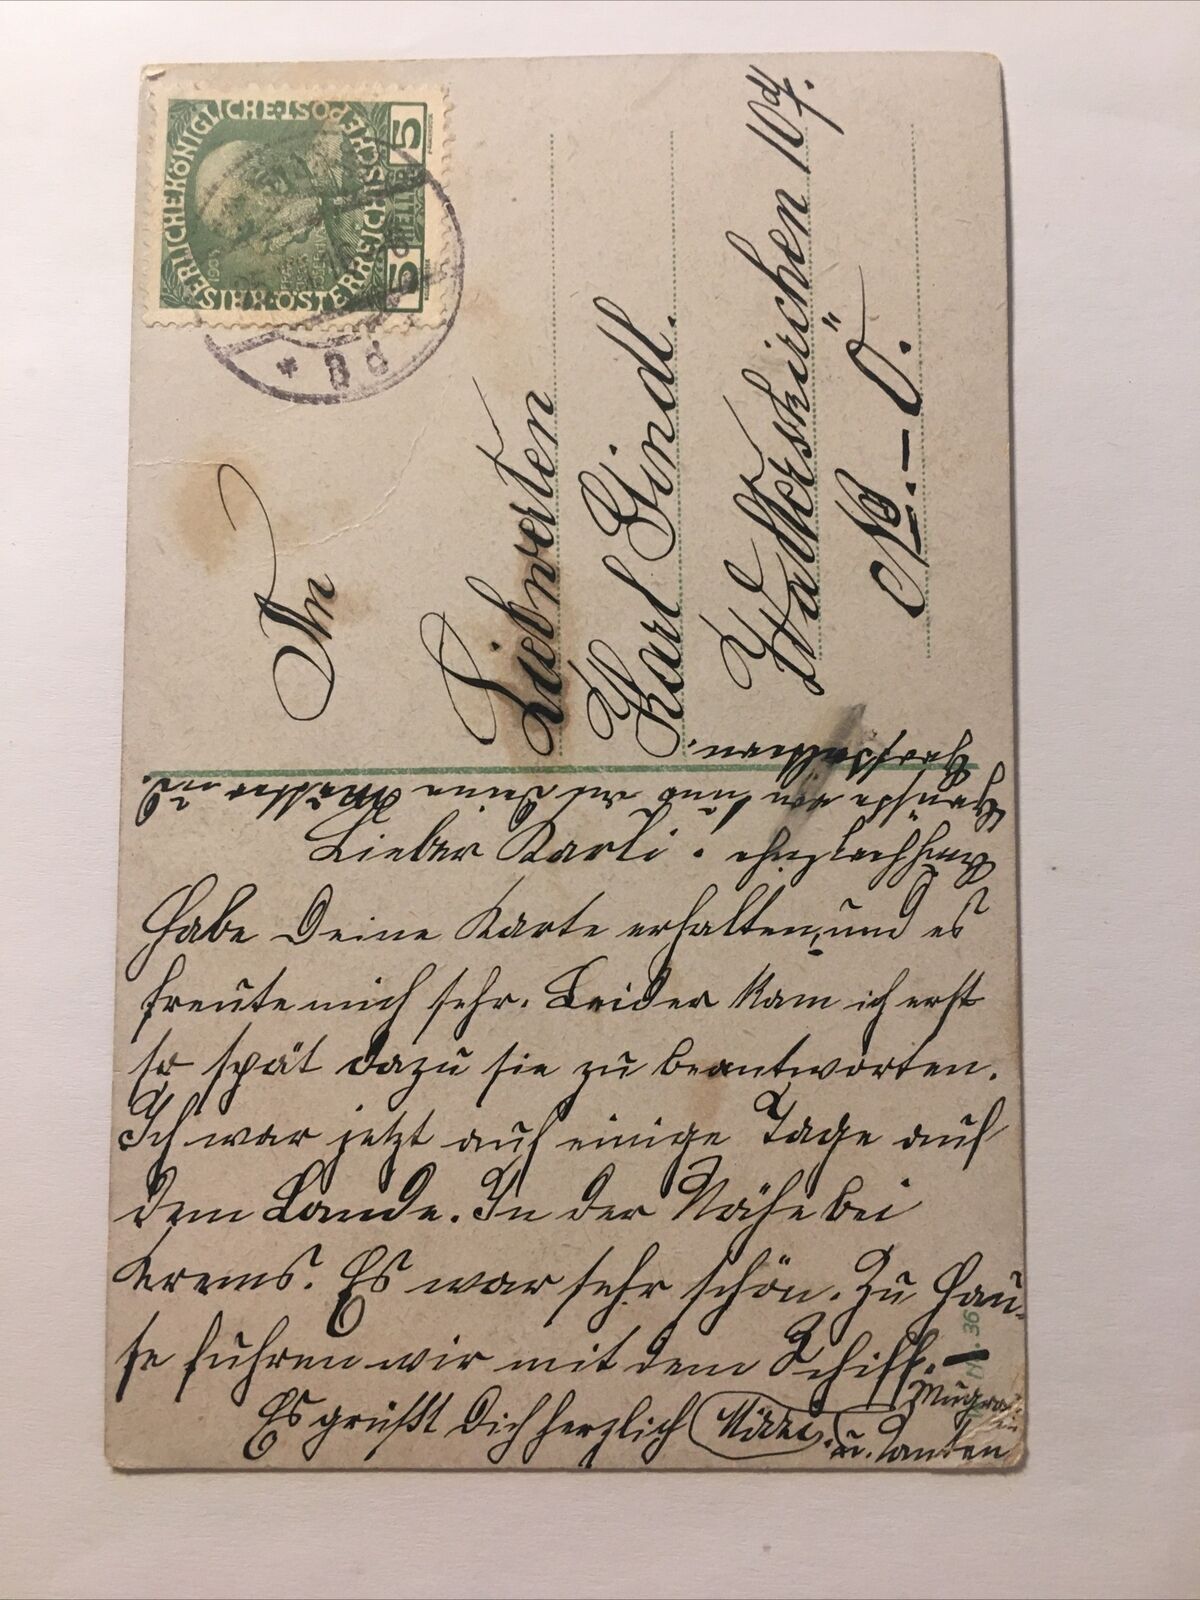 KAISERLICHEKÖNIGLICHE·ÖSTERREICHISCHE·POST
5 HELLER 5
1908
8d
An
Liebwerten
Karl Gindl.
Walterskirchen 104.
N.-Ö.
Lieber Karli.
Habe Deine Karte erhalten, und es
freute mich sehr. Leider kam ich erst
so spät dazu sie zu beantworten.
Ich war jetzt auf einige Tage auf
dem Lande. In der Nähe bei
Krems. Es war sehr schön. Zu Hau-
se fuhren wir mit dem Schiff. –
Es grüßt Dich herzlich Mizzi.
u. Tanten
Handküsse von uns
und Deine Mutter und
Großeltern.
36